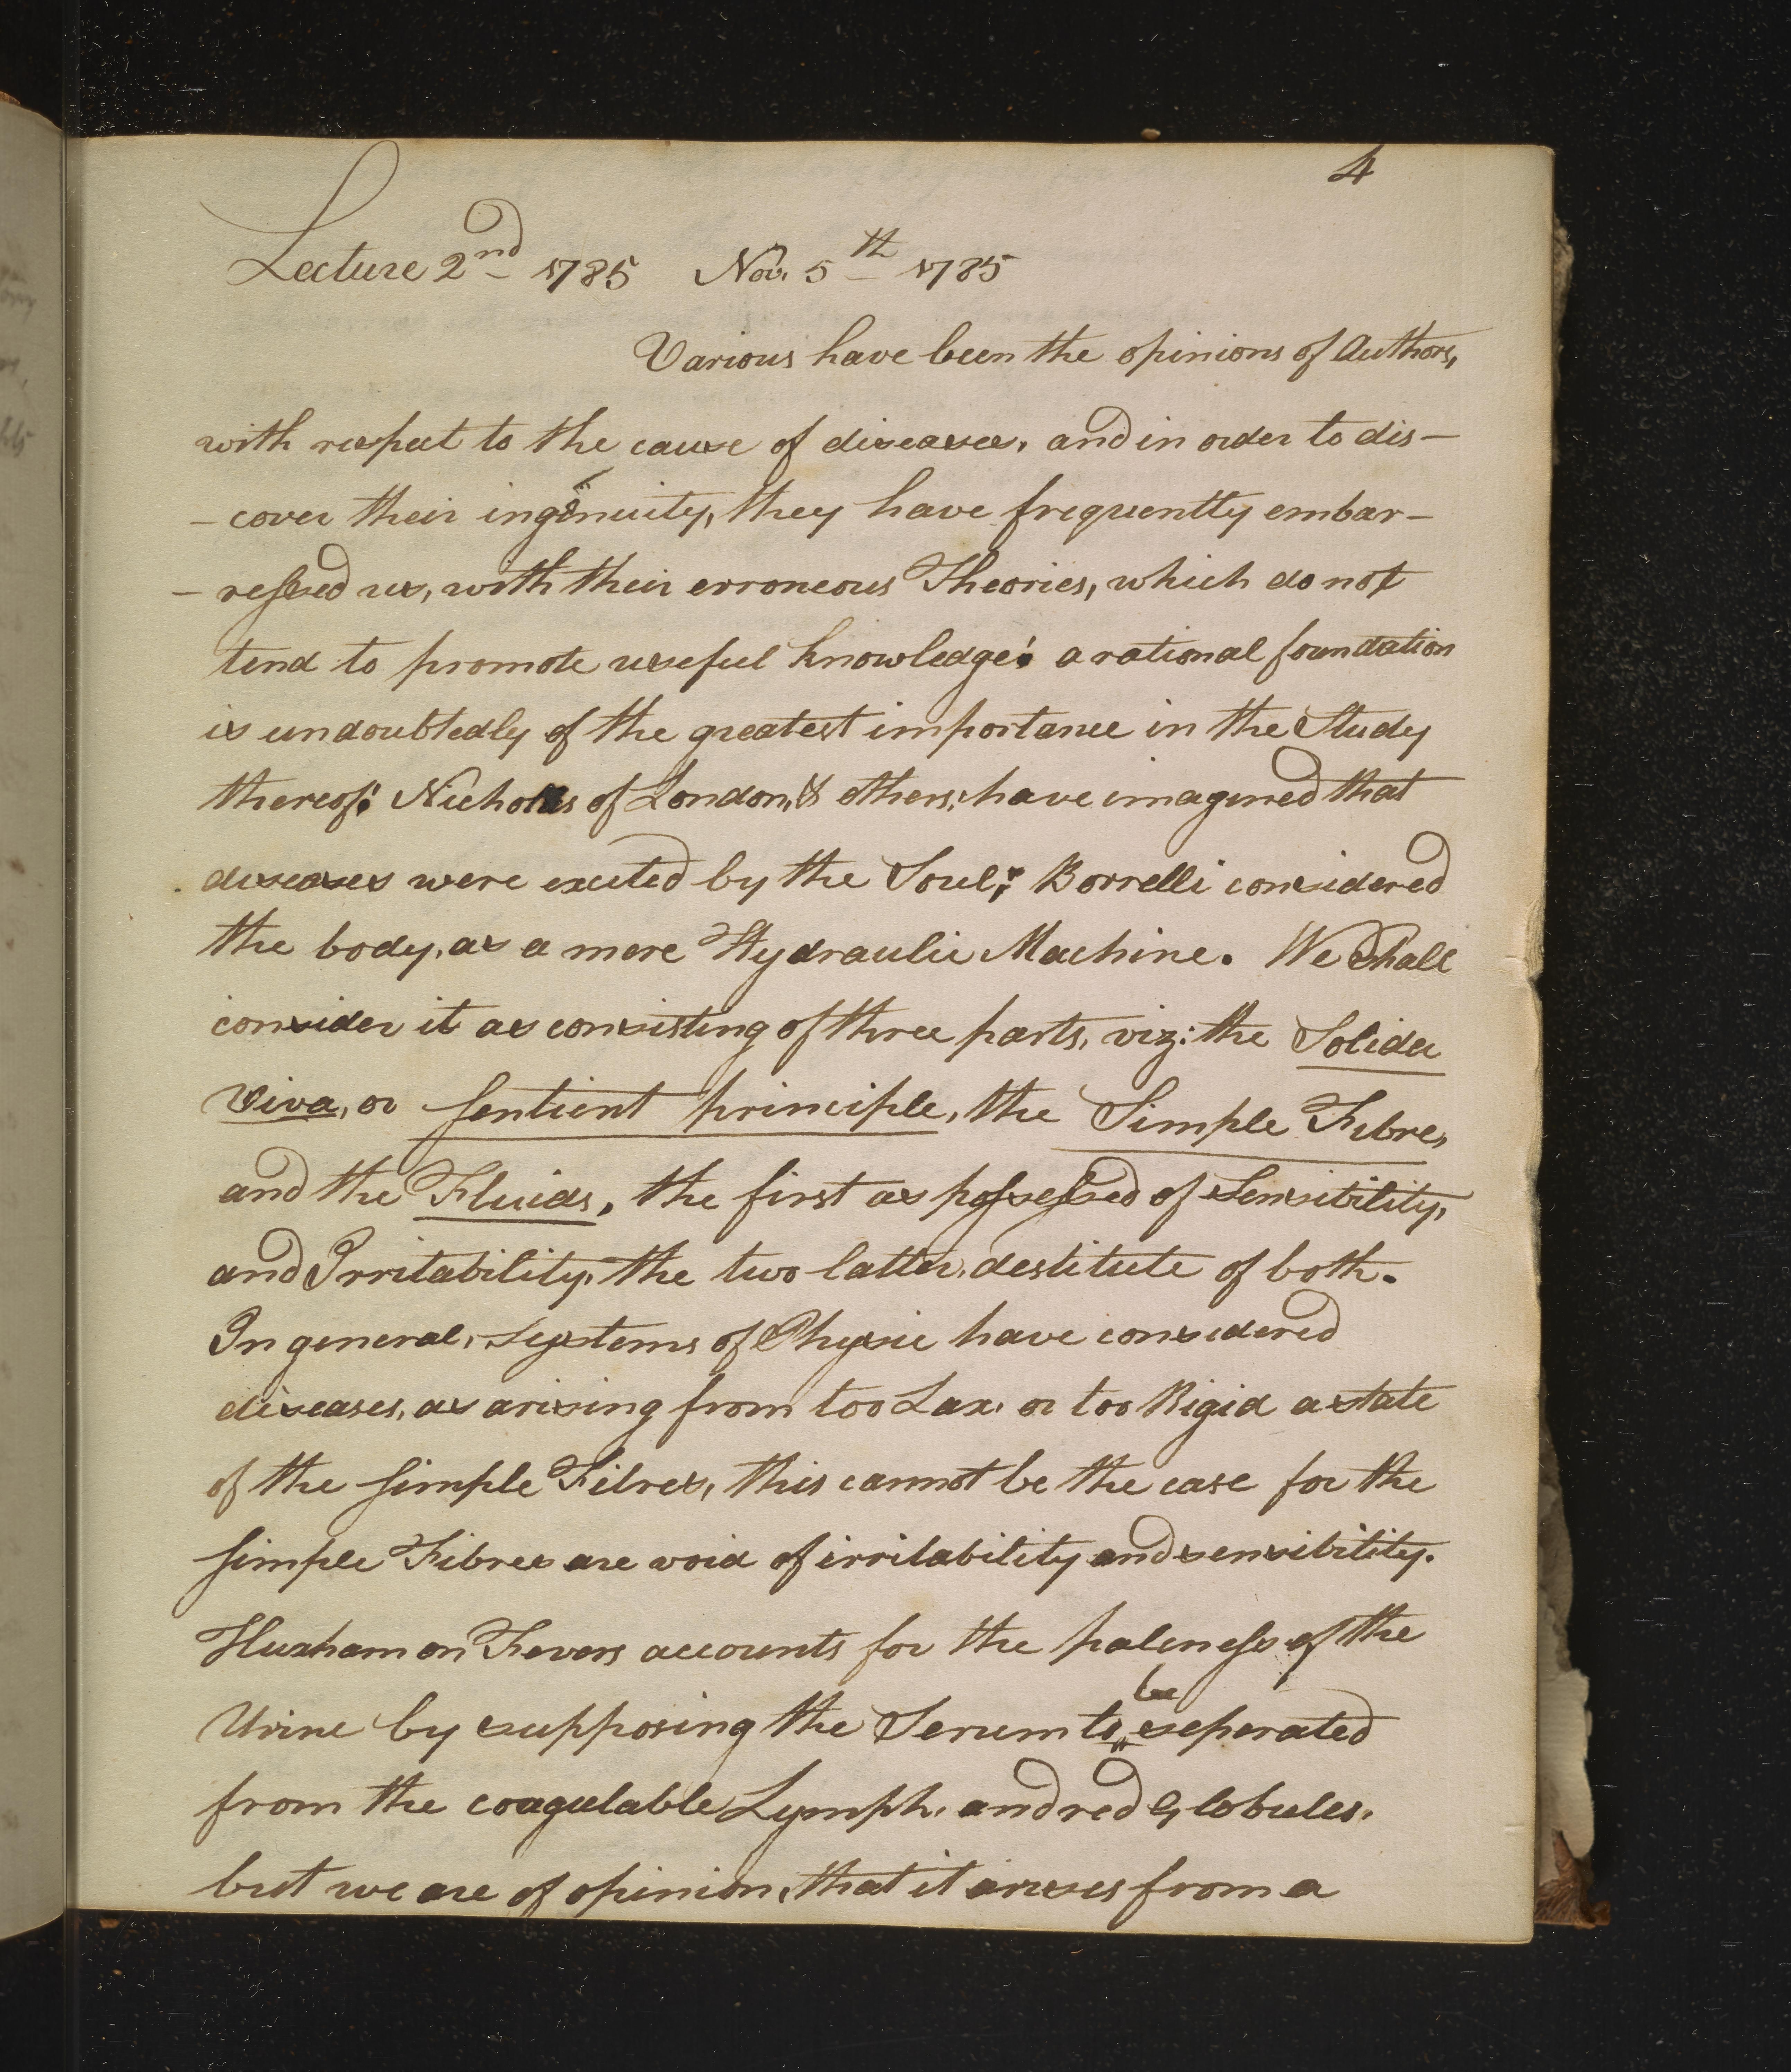 4
Lecture 2nd 1785 Nov. 5th 1785
Various have been the opinions of Authors,
with respect to the cause of diseases, and in order to dis-
-cover their ingenuity, they have frequently embar-
-ressed us, with their erroneous Theories, which do not
tend to promote useful knowledge: a rational foundation
is undoubtedly of the greatest importance in the Study
thereof: Nicholls of London, & others, have imagined that
diseases were excited by the Soul; Borrelli considered
the body, as a mere Hydraulic Machine. We Shall
consider it as consisting of three parts, viz: the Solida
Viva, or sentient principle, the Simple Fibre,
and the Fluids, the first as possessed of Sensibility,
and Irritability, the two latter, destitute of both.
In general, Systems of Physic have considered
diseases, as arising from too Lax, or too Rigid a state
of the simple Fibres, this cannot be the case for the
simple Fibres are void of irritability and sensibility.
Huxham on Fevers accounts for the paleness of the
Urine by supposing the Serum to be seperated
from the coagulable Lymph, and red Globules.
but we are of opinion, that it arises from a